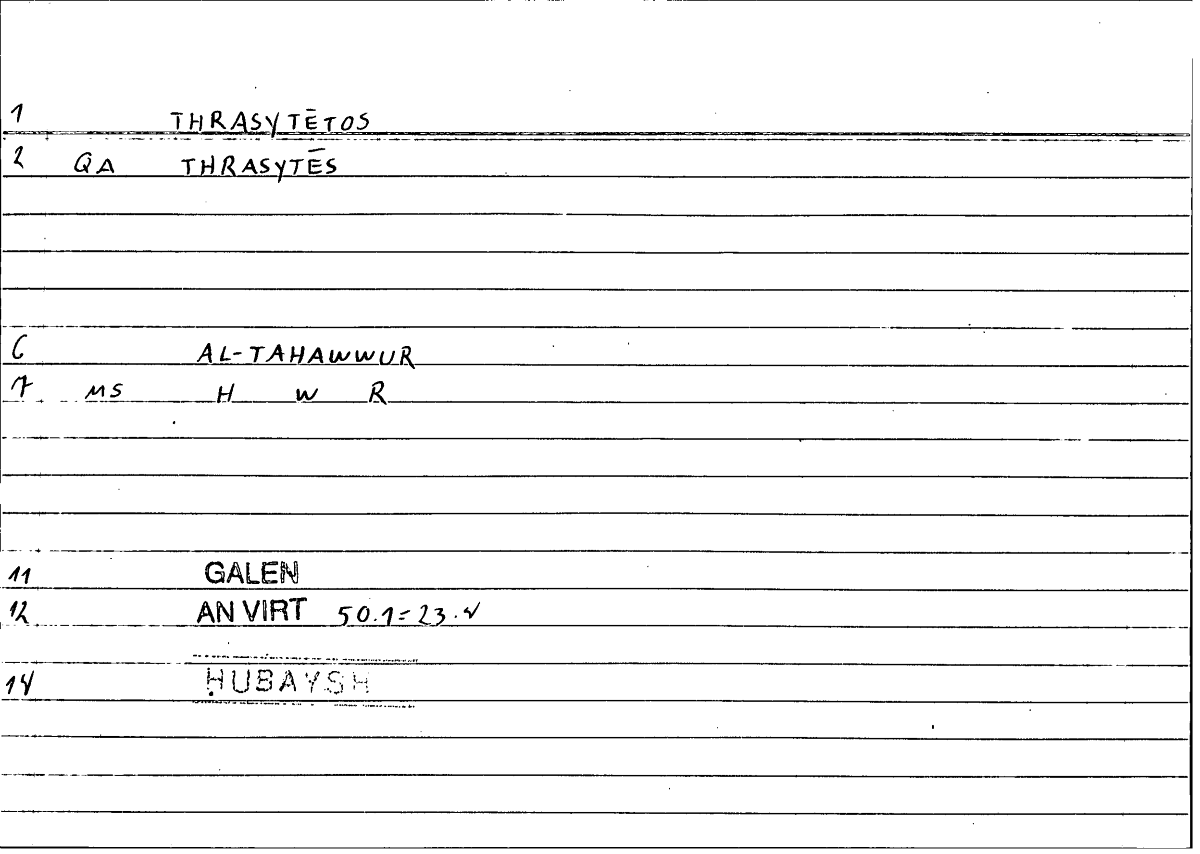 1 THRASYTĒTOS
2 QA THRASYTĒS
6 AL-TAHAWWUR
7 MS H W R
11 GALEN
12 AN VIRT 50.1=23.4
14 ḤUBAYSH